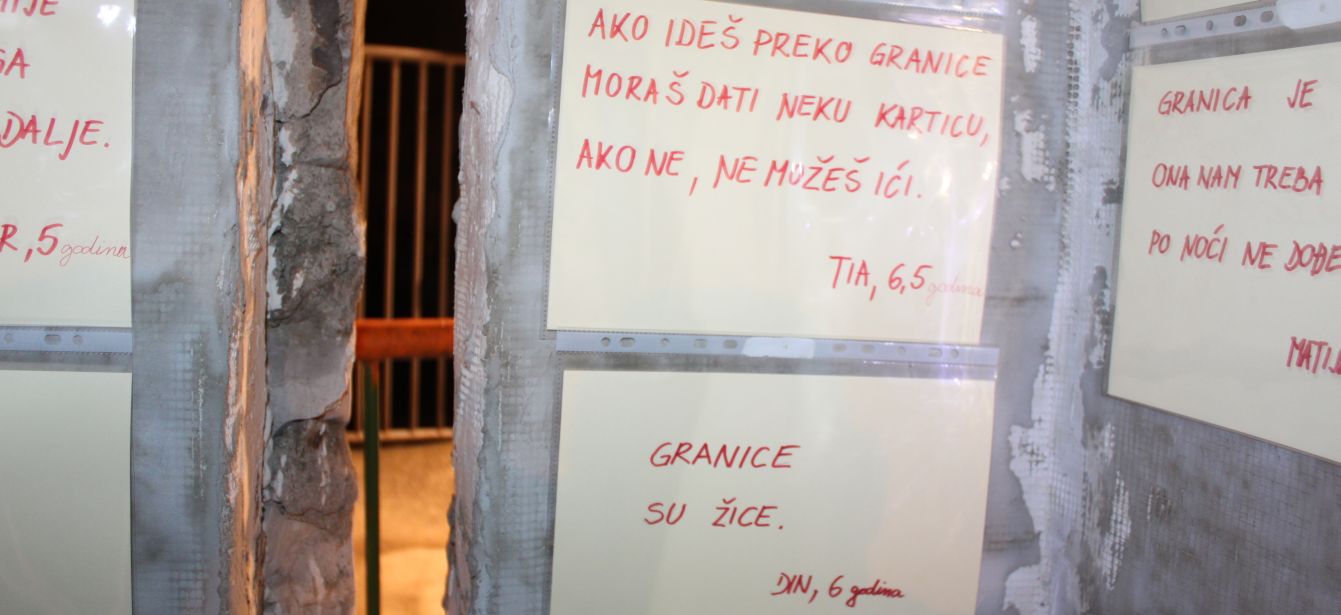 GA
DALJE.
R, 5 godina
AKO IDEŠ PREKO GRANICE
MORAŠ DATI NEKU KARTICU,
AKO NE, NE MOŽEŠ IĆI.
TIA, 6,5 godina
GRANICE
SU ŽICE.
DIN, 6 godina
GRANICA JE
ONA NAM TREBA
PO NOĆI NE DOĐE
MATIJ